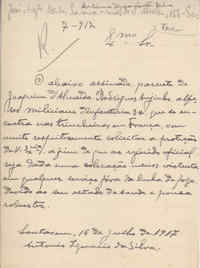 7-917
R.
Exmo Sr.
O abaixo assinado, parente de
Joaquim d'Almeida Rodrigues
miliciano d'Infantaria que se en-
contra nas trincheiras em França, com
muito respeito solicita a
de V. Exa, afim de que ao referido oficial
seja dada uma colocação menos violenta
em qualquer serviço fora da linha de fogo
devido ao seu estado de saude e pouca
robustez.
Santarem, 16 de julho de 1917
Antonio Ignacio da Silva.